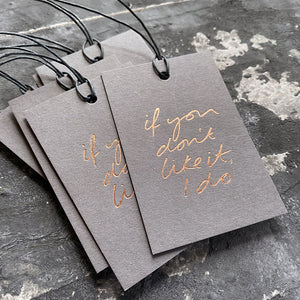 if you
don't
like it,
I do
if you
do
li